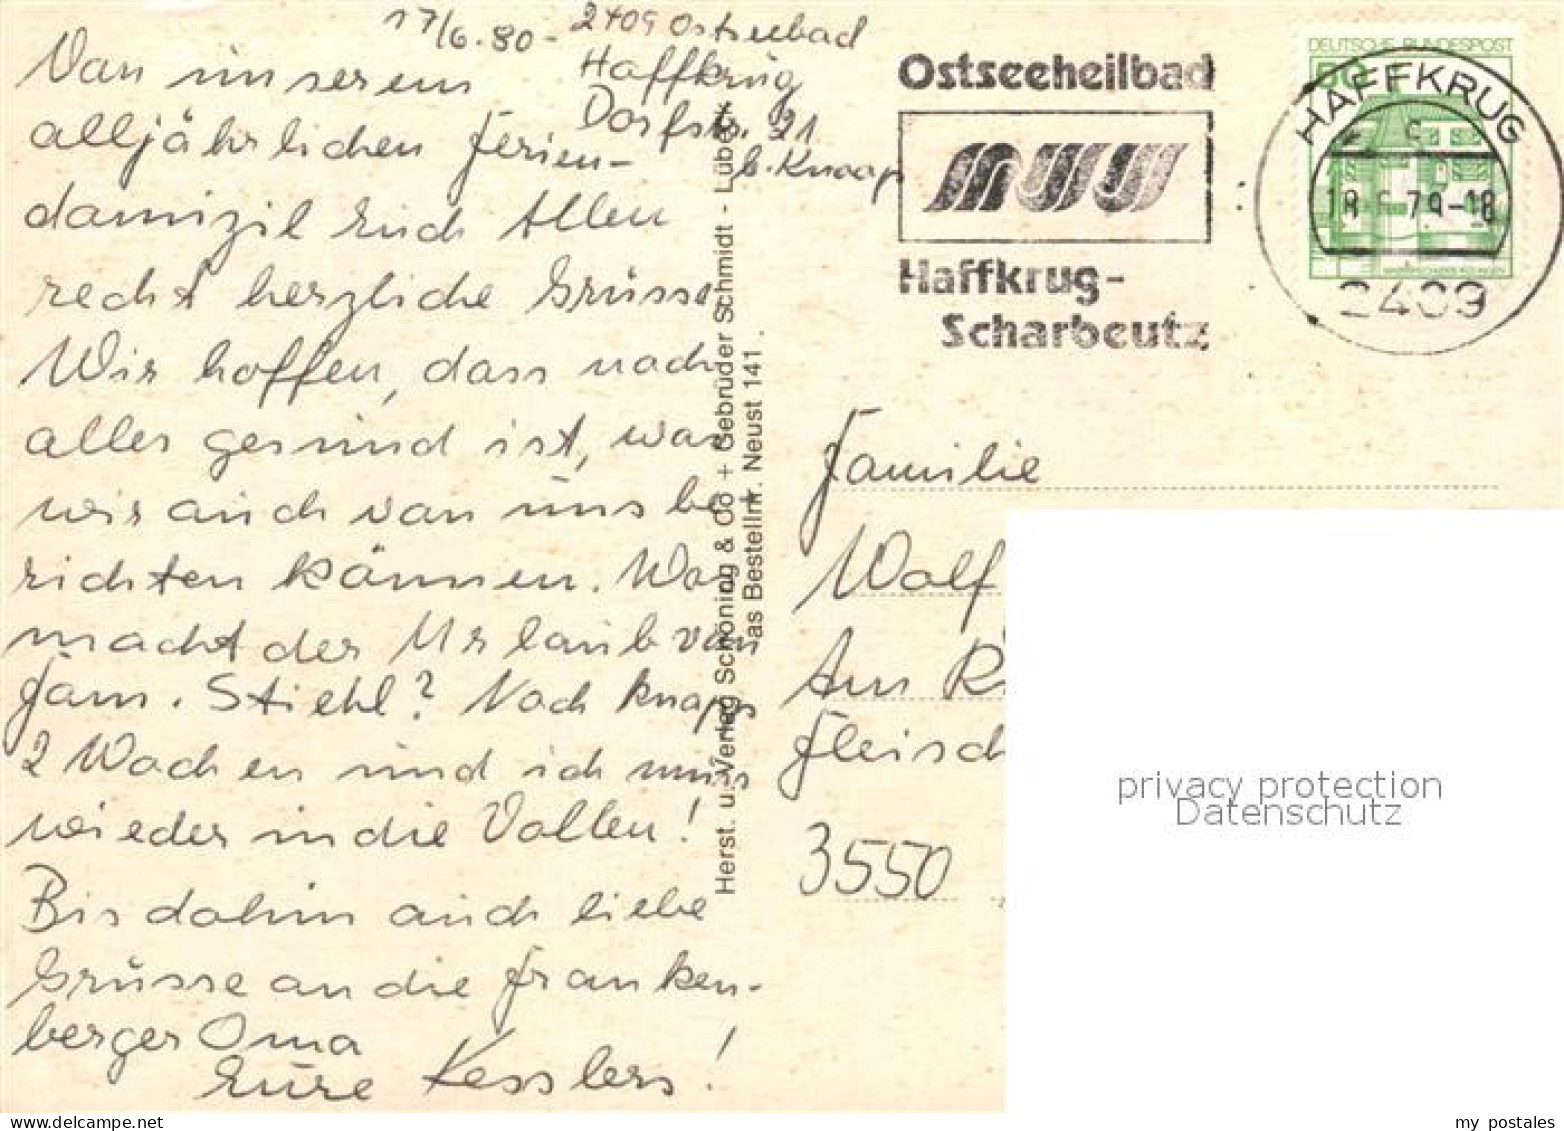 17/6.80- 2409 Ostseebad
Haffkrug
Dorfstr. 21
b. Knaap
Von unserem
alljährlichen Ferien-
domizil Euch Allen
recht herzliche Grüsse
Wir hoffen, dass noch
alles gesund ist, was
wir auch von uns be
richten können. Was
macht der Urlaub von
Fam. Stiehl? Noch knapp
2 Wochen und ich muss
wieder in die Vollen!
Bis dahin auch liebe
Grüsse an die Franken-
berger Oma
Eure Kesslers!
Herst. u. Verlag Schöning & Co + Gebrüder Schmidt - Lübeck
as Bestellnr. Neust 141.
Ostseeheilbad
Haffkrug-
Scharbeutz
DEUTSCHE BUNDESPOST
HAFFKRUG
2409
Familie
Wolf
Am
Fleisch
3550
privacy protection
Datenschutz
my postales
www.delcampe.net